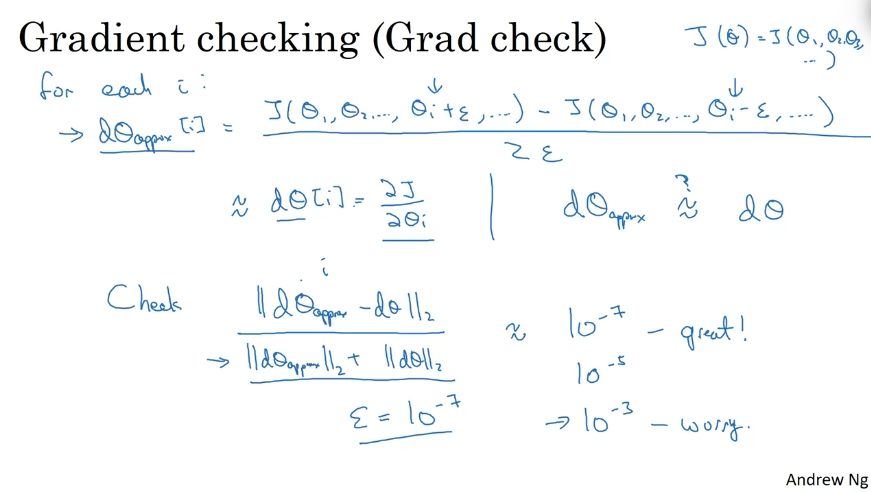 Gradient checking (Grad check)
J(θ) = J(θ₁, θ₂, θ₃, ...)
for each i:
→ dθapprox[i] = (J(θ₁, θ₂, ..., θᵢ+ε, ...) - J(θ₁, θ₂, ..., θᵢ-ε, ....)) / 2ε
≈ dθ[i] = ∂J/∂θᵢ | dθapprox ≈? dθ
i
Check ||dθapprox - dθ||₂ / (||dθapprox||₂ + ||dθ||₂) ≈ 10⁻⁷ - great!
10⁻⁵
ε = 10⁻⁷ → 10⁻³ - worry.
Andrew Ng